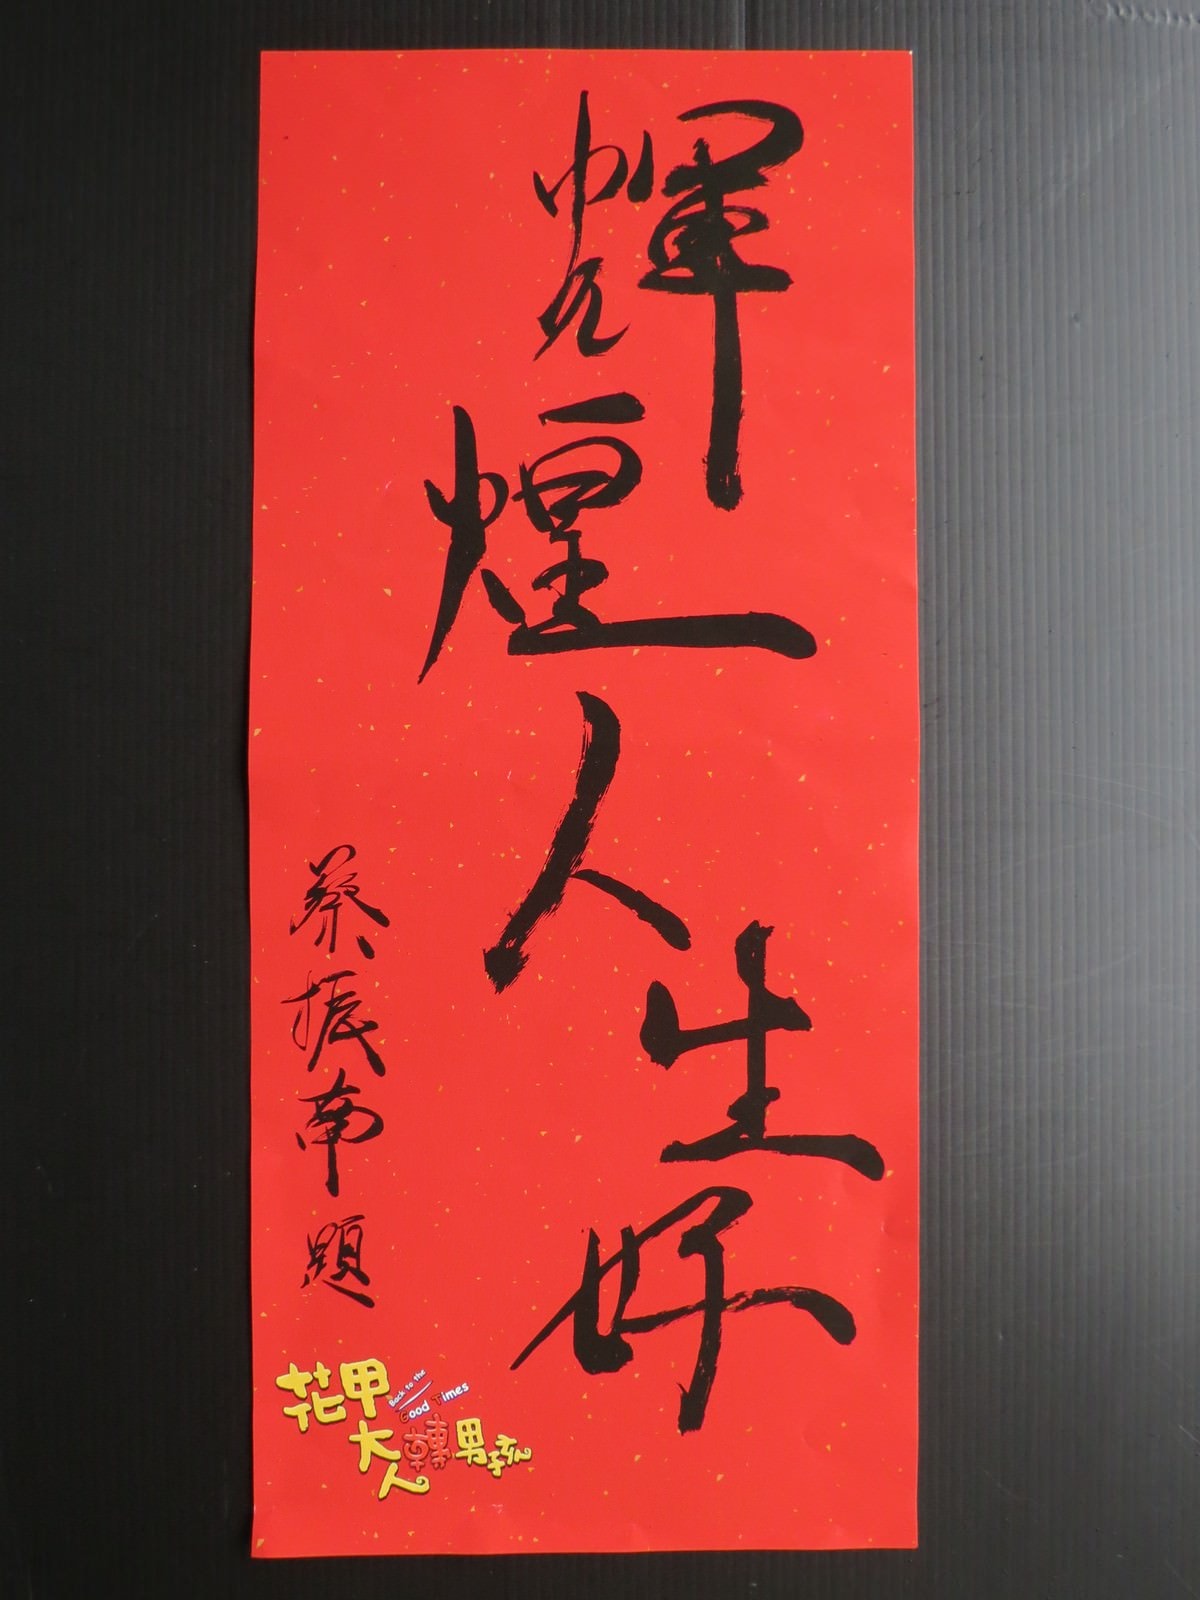 輝煌人生好
蔡振南題
花甲大人轉男孩
Back to the
Good Times